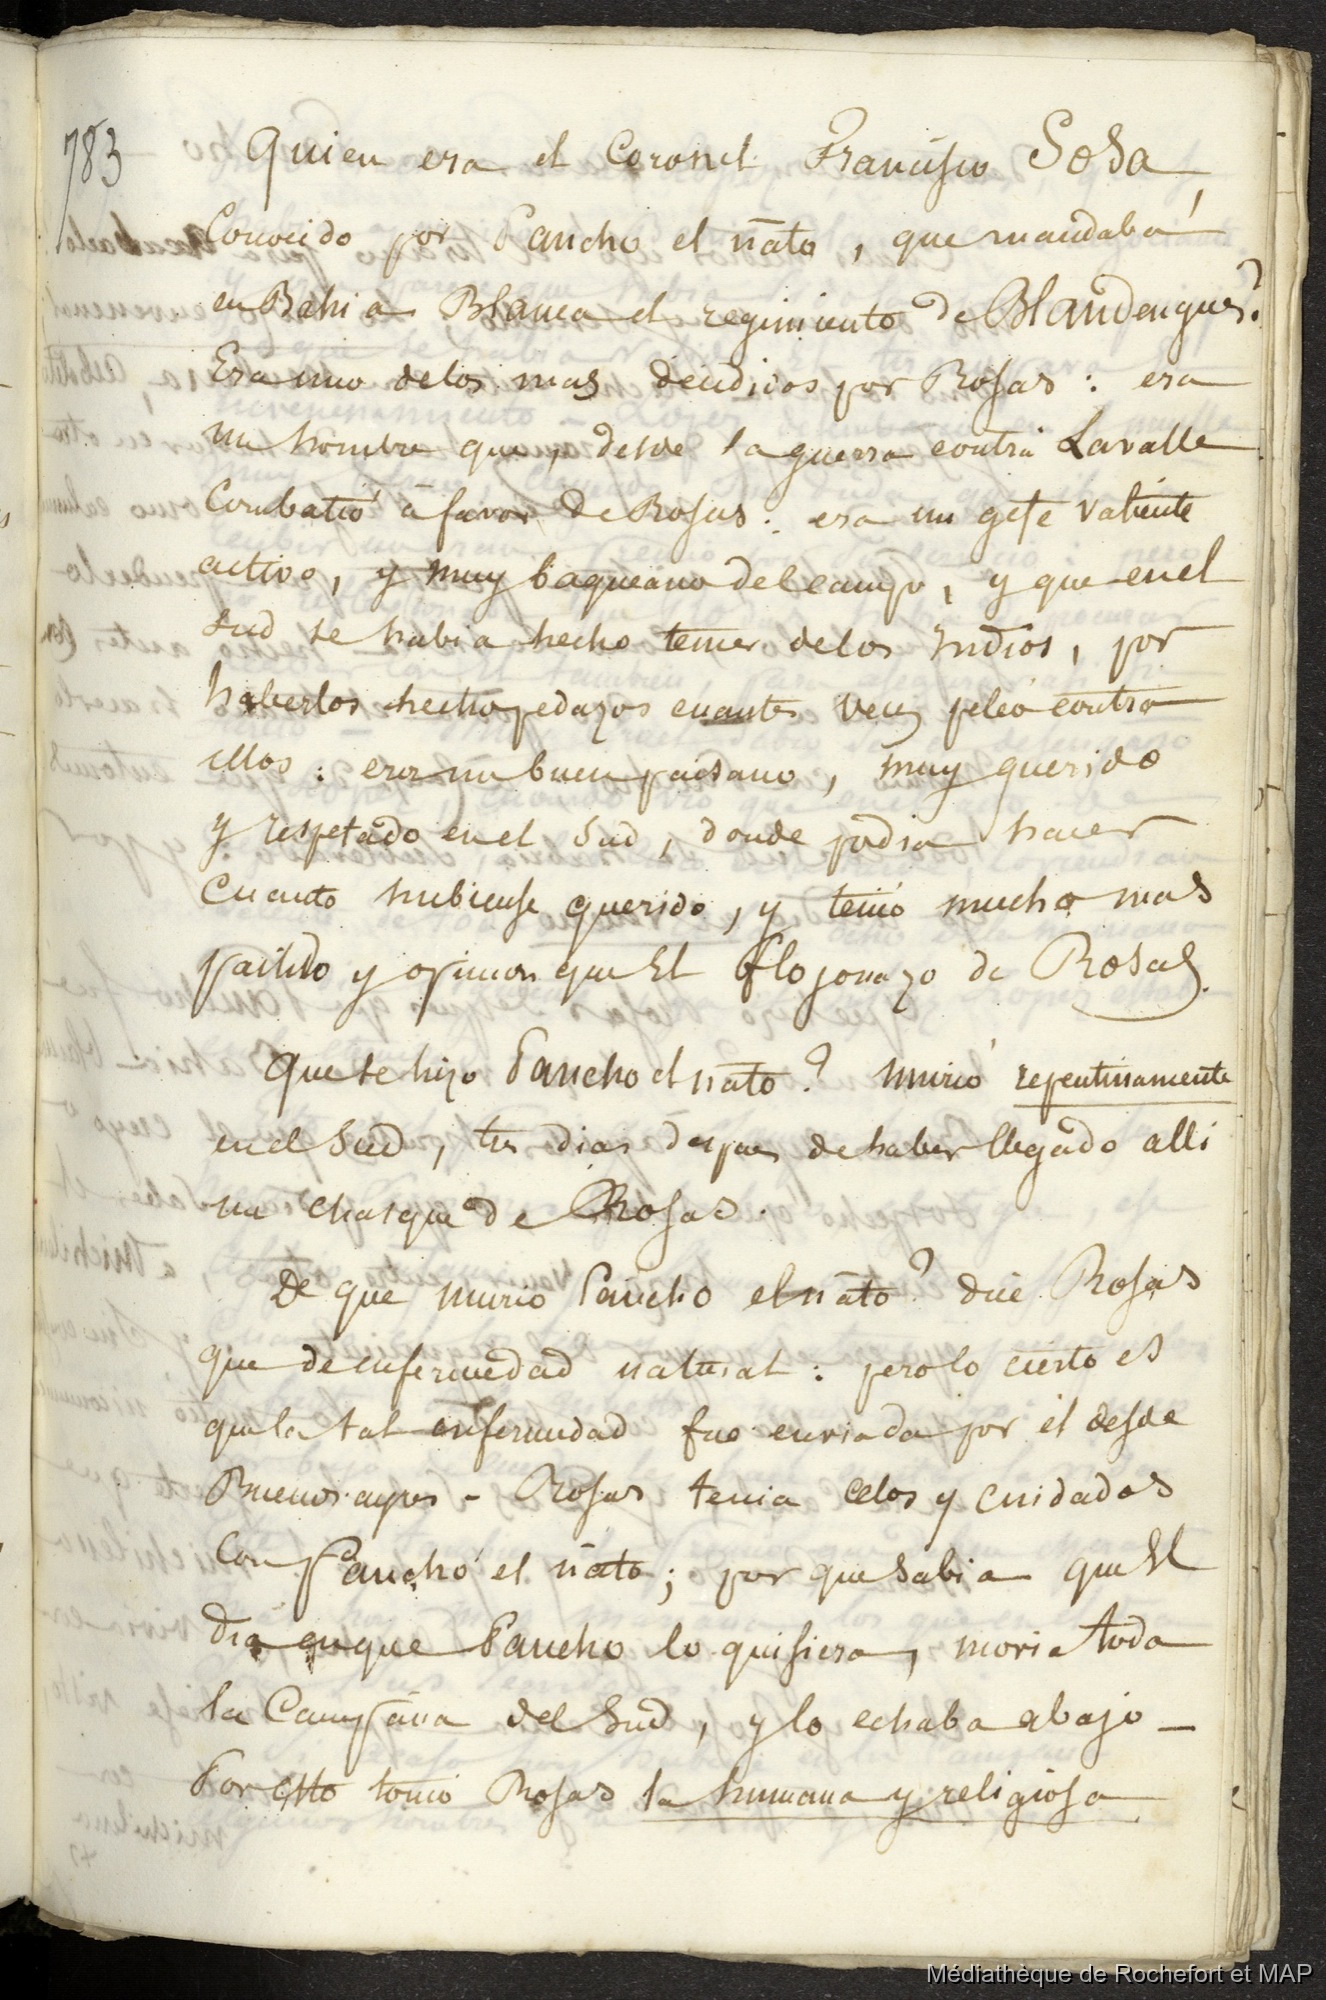 783
Quien era el Coronel Francisco Sosa,
Conocido por Pancho el ñato, que mandaba
en Bahia Blanca el regimiento de Blandengues?
Era uno delos mas decididos por Rosas: era
un hombre que, desde la guerra contra Lavalle
Combatió á favor de Rosas: era un gefe valiente
activo, y muy baqueano del campo, y que en el
Sud se habia hecho temer delos Indios, por
haberlos hecho pedazos cuantas veces peleó contra
ellos: era un buen paisano, muy querido
y respetado en el Sud, donde podia hacer
Cuanto hubiese querido, y tenia mucho mas
partido y opinion que El flojonazo de Rosas.
Que se hizo Pancho el ñato? murió repentinamente
en el Sud, tres dias despues de haber llegado alli
un chasque de Rosas.
De que murio Pancho el ñato? dice Rosas
que de enfermedad natural: pero lo cierto es
que la tal enfermedad fue enviada por él desde
Buenos ayres - Rosas tenia celos y cuidados
Con Pancho el ñato; por que sabia que El
dia en que Pancho lo quisiera, movia toda
la Campaña del Sud, y lo echaba abajo -
Por esto tomó Rosas la humana y religiosa
Médiathèque de Rochefort et MAP